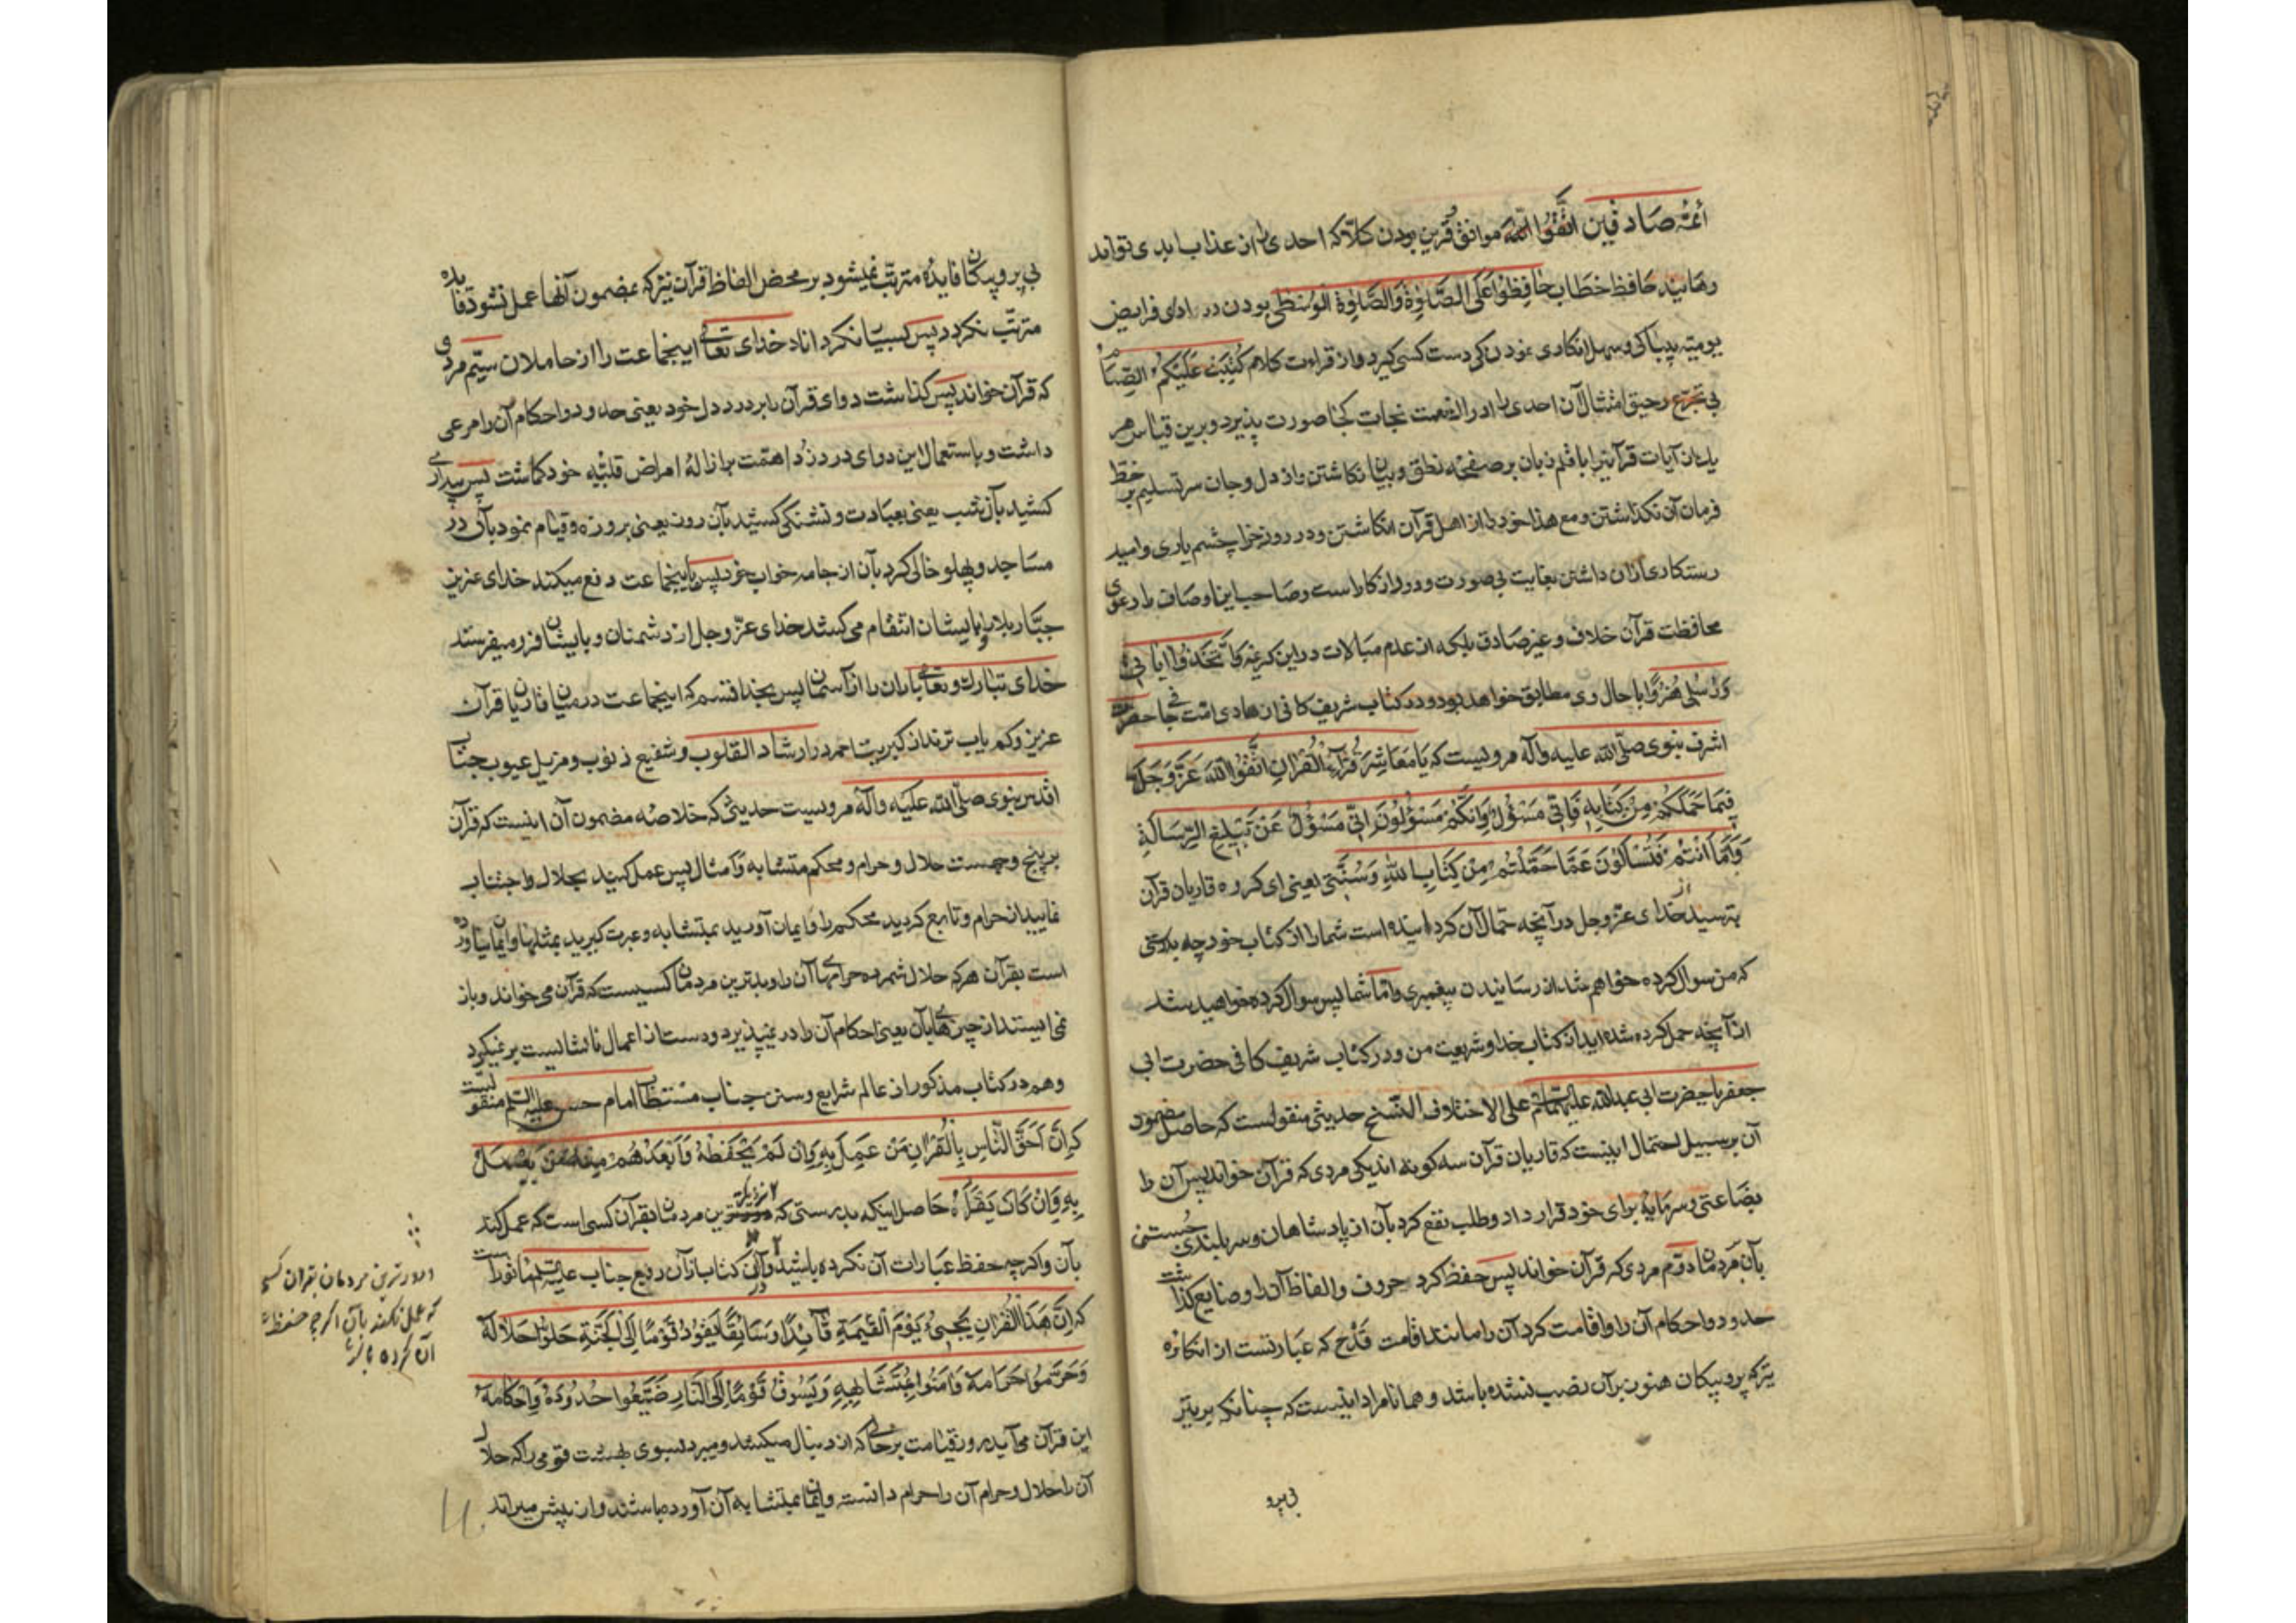 أئمّه صادقین اتَّقُوا اللّه موافق و قرین بودن کلّا که احدی را از عذاب ابدی تواند
رهانید حافظ خطاب حَافِظُوا عَلَی الصَّلٰوةِ وَالصَّلٰوةِ الْوُسْطٰی بودن در ادای فرایض
یومیّه بیباکی و سهل انکاری نمودن کی دست کسی کیرد و از قراءت کلام کُتِبَ عَلَیْکُمُ الصِّیَامُ
بی تجرّع رحیق امتثال آن احدی را ادراک نعمت نجات کجا صورت پذیرد و برین قیاس هر
یک از آیات قرآنیرا با قلم زبان بر صفحهٔ نطق و بیان نکاشتن و از دل و جان سر تسلیم بر خطّ
فرمان آن نکذاشتن و مع هذا خود را از اهل قرآن انکاشتن و در روز جزا چشم یاری و امید
رستکاری ازان داشتن بغایت بی صورت و دور از کار است و صاحب این اوصاف را دعوی
محافظت قرآن خلاف و غیر صادق بلکه از عدم مبالات در این کریمه وَاتَّخَذُوا آیَاتِی
وَرُسُلِی هُزُوًا با حال وی مطابق خواهد بود و در کتاب شریف کافی از هادی امّت ناجی حضرت
اشرف نبوی صلّی اللّه علیه وآله مرویست که یَا مَعَاشِرَ قُرَّاءِ الْقُرْآنِ اتَّقُوا اللّهَ عَزَّ وَجَلَّ
فِیمَا حَمَّلَکُمْ مِنْ کِتَابِهِ فَإِنِّی مَسْؤُلٌ وَإِنَّکُمْ مَسْؤُلُونَ إِنِّی مَسْؤُلٌ عَنْ تَبْلِیغِ الرِّسَالَةِ
وَأَمَّا أَنْتُمْ فَتُسْأَلُونَ عَمَّا حُمِّلْتُمْ مِنْ کِتَابِ اللّهِ وَسُنَّتِی یعنی ای کروه قاریان قرآن
بترسید از خدای عزّ وجل در آنچه حمّال آن کردانیده است شما را از کتاب خود چه بدرستی
که من سوال کرده خواهم شد از رسانیدن پیغمبری وامّا شما پس سوال کرده خواهید شد
از آنچه حمل کرده شده اید از کتاب خدا و شریعت من و در کتاب شریف کافی حضرت ابی
جعفر یا حضرت ابی عبداللّه علیهما السّلم علی الاختلاف النّسخ حدیثی منقولست که حاصل مضمون
آن بر سبیل احتمال اینست که قاریان قرآن سه کونه اند یکی مردی که قرآن خواند پس آن را
بضاعتی و سرمایهٔ برای خود قرار داد و طلب نفع کرد بآن از پادشاهان و سربلندی جستن
بآن بمردمان دوّم مردی که قرآن خواند پس حفظ کرد حروف و الفاظ آن را و ضایع کذاشت
حدود و احکام آن را و اقامت کرد آن را مانند اقامت قدح که عبارتست از انکاره
تیر که پر و پیکان هنوز بر آن نصب نشده باشد و همانا مراد اینست که چنانکه بر تیر
بی پر و
بی پر و پیکان فایدهٔ مترتّب نمیشود بر محض الفاظ قرآن نیز که بمضمون آنها عمل نشود فایده
مترتّب نکردد پس بسیار نکرداناد خدای تعالی اینجماعت را از حاملان سیّم مردی
که قرآن خواند پس کذاشت دوای قرآن را بر درد دل خود یعنی حدود و احکام آن را مرعی
داشت و باستعمال این دوای درد زدا همّت بر ازالهٔ امراض قلبیّه خود کماشت پس بیداری
کشید بآن شب یعنی بعبادت و تشنکی کشید بآن روز یعنی بروزه و قیام نمود بآن در
مساجد و پهلو خالی کرد بآن از جامه خواب خود پس باینجماعت دفع میکند خدای عزیز
جبّار بلا را و بایشان انتقام می کشد خدای عزّ وجل از دشمنان و بایشان فرو میفرستد
خدای تبارک و تعالی باران را از آسمان پس بخدا قسم که اینجماعت در میان قاریان قرآن
عزیز و کم یاب ترند از کبریت احمر در ارشاد القلوب و شفیع ذنوب و مزیل عیوب جناب
اقدس نبوی صلّی اللّه علیه وآله مرویست حدیثی که خلاصه مضمون آن اینست که قرآن
بر پنج وجهست حلال و حرام و محکم متشابه و امثال پس عمل کنید بحلال و اجتناب
نمایید از حرام و تابع کردید محکم را و ایمان آورید بمتشابه و عبرت کیرید بمثلها و ایمان نیاورده
است بقرآن هر که حلال شمرده حرامهای آن را و بدترین مردمان کسیست که قرآن می خواند و باز
نمی ایستد از چیزهای آن یعنی احکام آن را در نمیپذیرد و دست از اعمال ناشایست بر نمیکیرد
وهم در کتاب مذکور از عالم شرایع و سنن جناب مستطاب امام حسن علیه السلم منقولست
که إِنَّ أَحَقَّ النَّاسِ بِالْقُرْآنِ مَنْ عَمِلَ بِهِ وَإِنْ لَمْ یَحْفَظْهُ وَأَبْعَدَهُمْ مِنْهُ مَنْ لَمْ یَعْمَلْ
بِهِ وَإِنْ کَانَ یَقْرَأُهُ حاصل اینکه بدرستی که نزدیکترین مردمان بقرآن کسی است که عمل کند
بآن واکرچه حفظ عبارات آن نکرده باشد و در کتاب از آن رفیع جناب علیه السلم مأثور است
که إِنَّ هَذَا الْقُرْآنَ یَجِیءُ یَوْمَ الْقِیٰمَةِ قَائِدًا وَسَائِقًا یَقُودُ قَوْمًا إِلَی الْجَنَّةِ حَلُّوا حَلَالَهُ
وَحَرَّمُوا حَرَامَهُ وَآمَنُوا بِمُتَشَابِهِهِ وَیَسُوقُ قَوْمًا إِلَی النَّارِ ضَیَّعُوا حُدُودَهُ وَأَحْکَامَهُ
این قرآن می آید روز قیامت برحالی که از دنبال میکشد و میبرد بسوی بهشت قومی را که حلال
آن را حلال و حرام آن را حرام دانسته و ایمان بمتشابه آن آورده باشند و از پیش میراند
و دورترین مردمان بقران کسی
که عمل نکند بآن اکرچه حفظ
آن کرده باشد